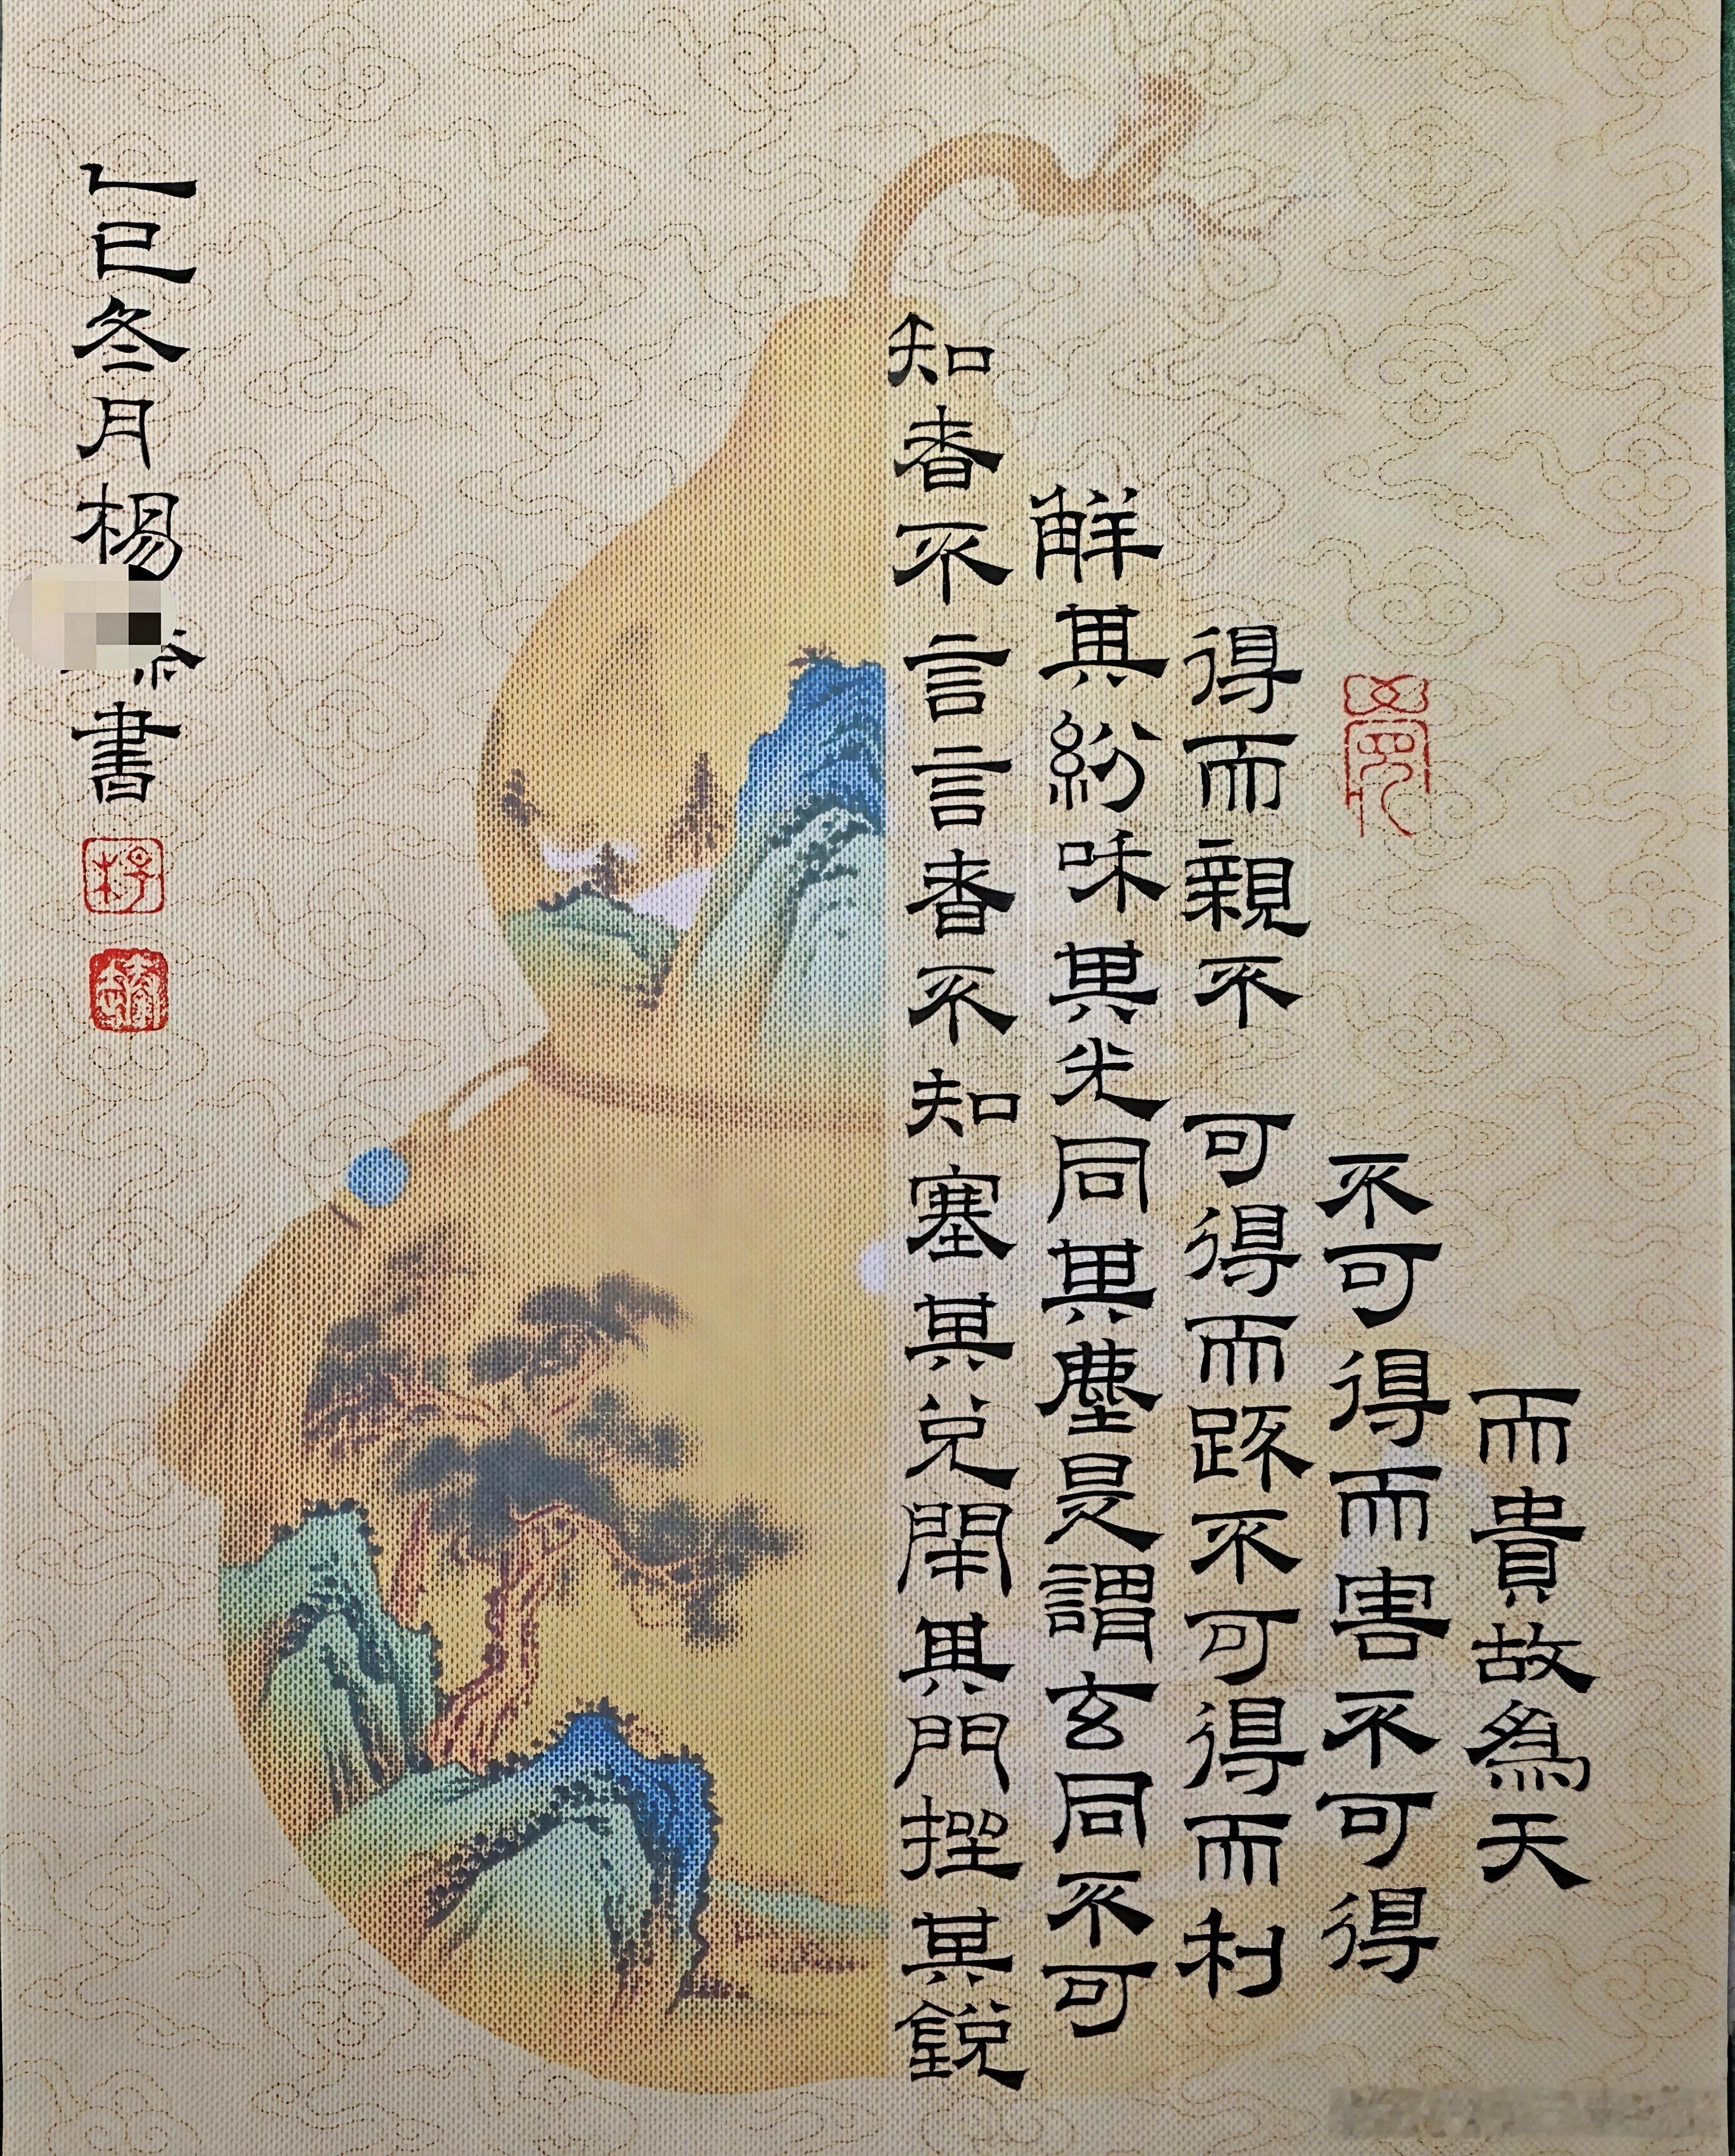 知者不言言者不知塞其兑閉其門挫其銳
解其紛咊其光同其塵是謂玄同不可
得而親不可得而踈不可得而利
不可得而害不可得
而貴故爲天
乙巳冬月楊
書